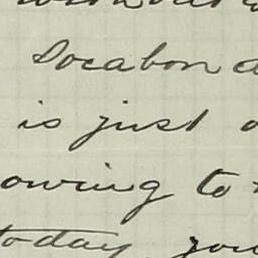 Socabon
is just
owing to
today you